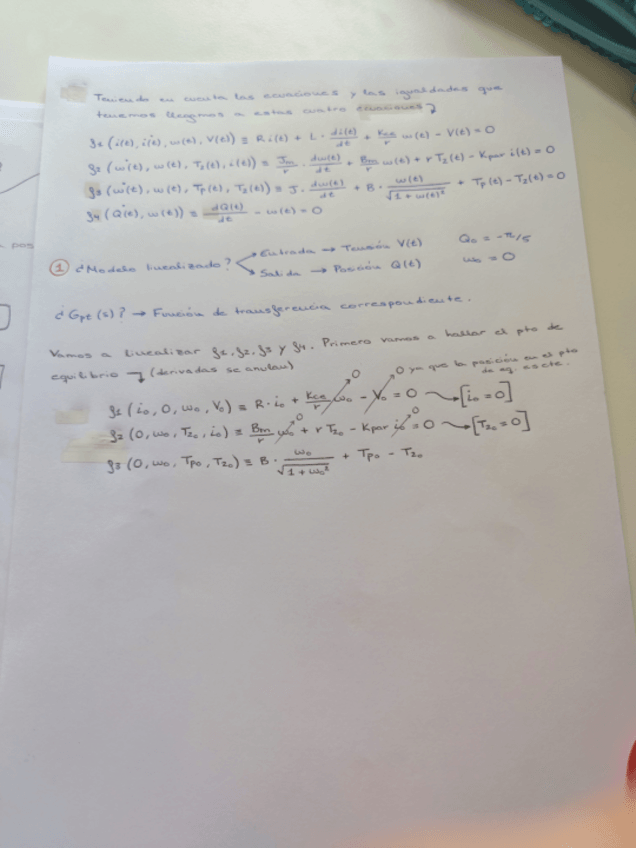 Teniendo en cuenta las ecuaciones y las igualdades que
tenemos llegamos a estas cuatro ecuaciones
f1 (i(t), i̇(t), ω(t), V(t)) ≡ R i(t) + L · di(t)/dt + Kce/r ω(t) − V(t) = 0
f2 (ω̇(t), ω(t), T2(t), i(t)) ≡ Jm/r · dω(t)/dt + Bm/r ω(t) + r T2(t) − Kpar i(t) = 0
f3 (ω̇(t), ω(t), Tp(t), T2(t)) ≡ J · dω(t)/dt + B · ω(t)/√(1 + ω(t)²) + Tp(t) − T2(t) = 0
f4 (Q̇(t), ω(t)) ≡ dQ(t)/dt − ω(t) = 0
① ¿Modelo linealizado? Entrada → Tensión V(t) Q0 = −π/5
Salida → Posición Q(t) ω0 = 0
¿Gpt(s)? → Función de transferencia correspondiente.
Vamos a linealizar f1, f2, f3 y f4. Primero vamos a hallar el pto de
equilibrio (derivadas se anulan) 0 0 ya que la posición en el pto
de eq. es cte.
f1 (i0, 0, ω0, V0) ≡ R · i0 + Kce/r ω0 − V0 = 0 → [i0 = 0]
f2 (0, ω0, T20, i0) ≡ Bm/r ω0 + r T20 − Kpar i0 = 0 → [T20 = 0]
f3 (0, ω0, Tp0, T20) ≡ B · ω0/√(1 + ω0²) + Tp0 − T20